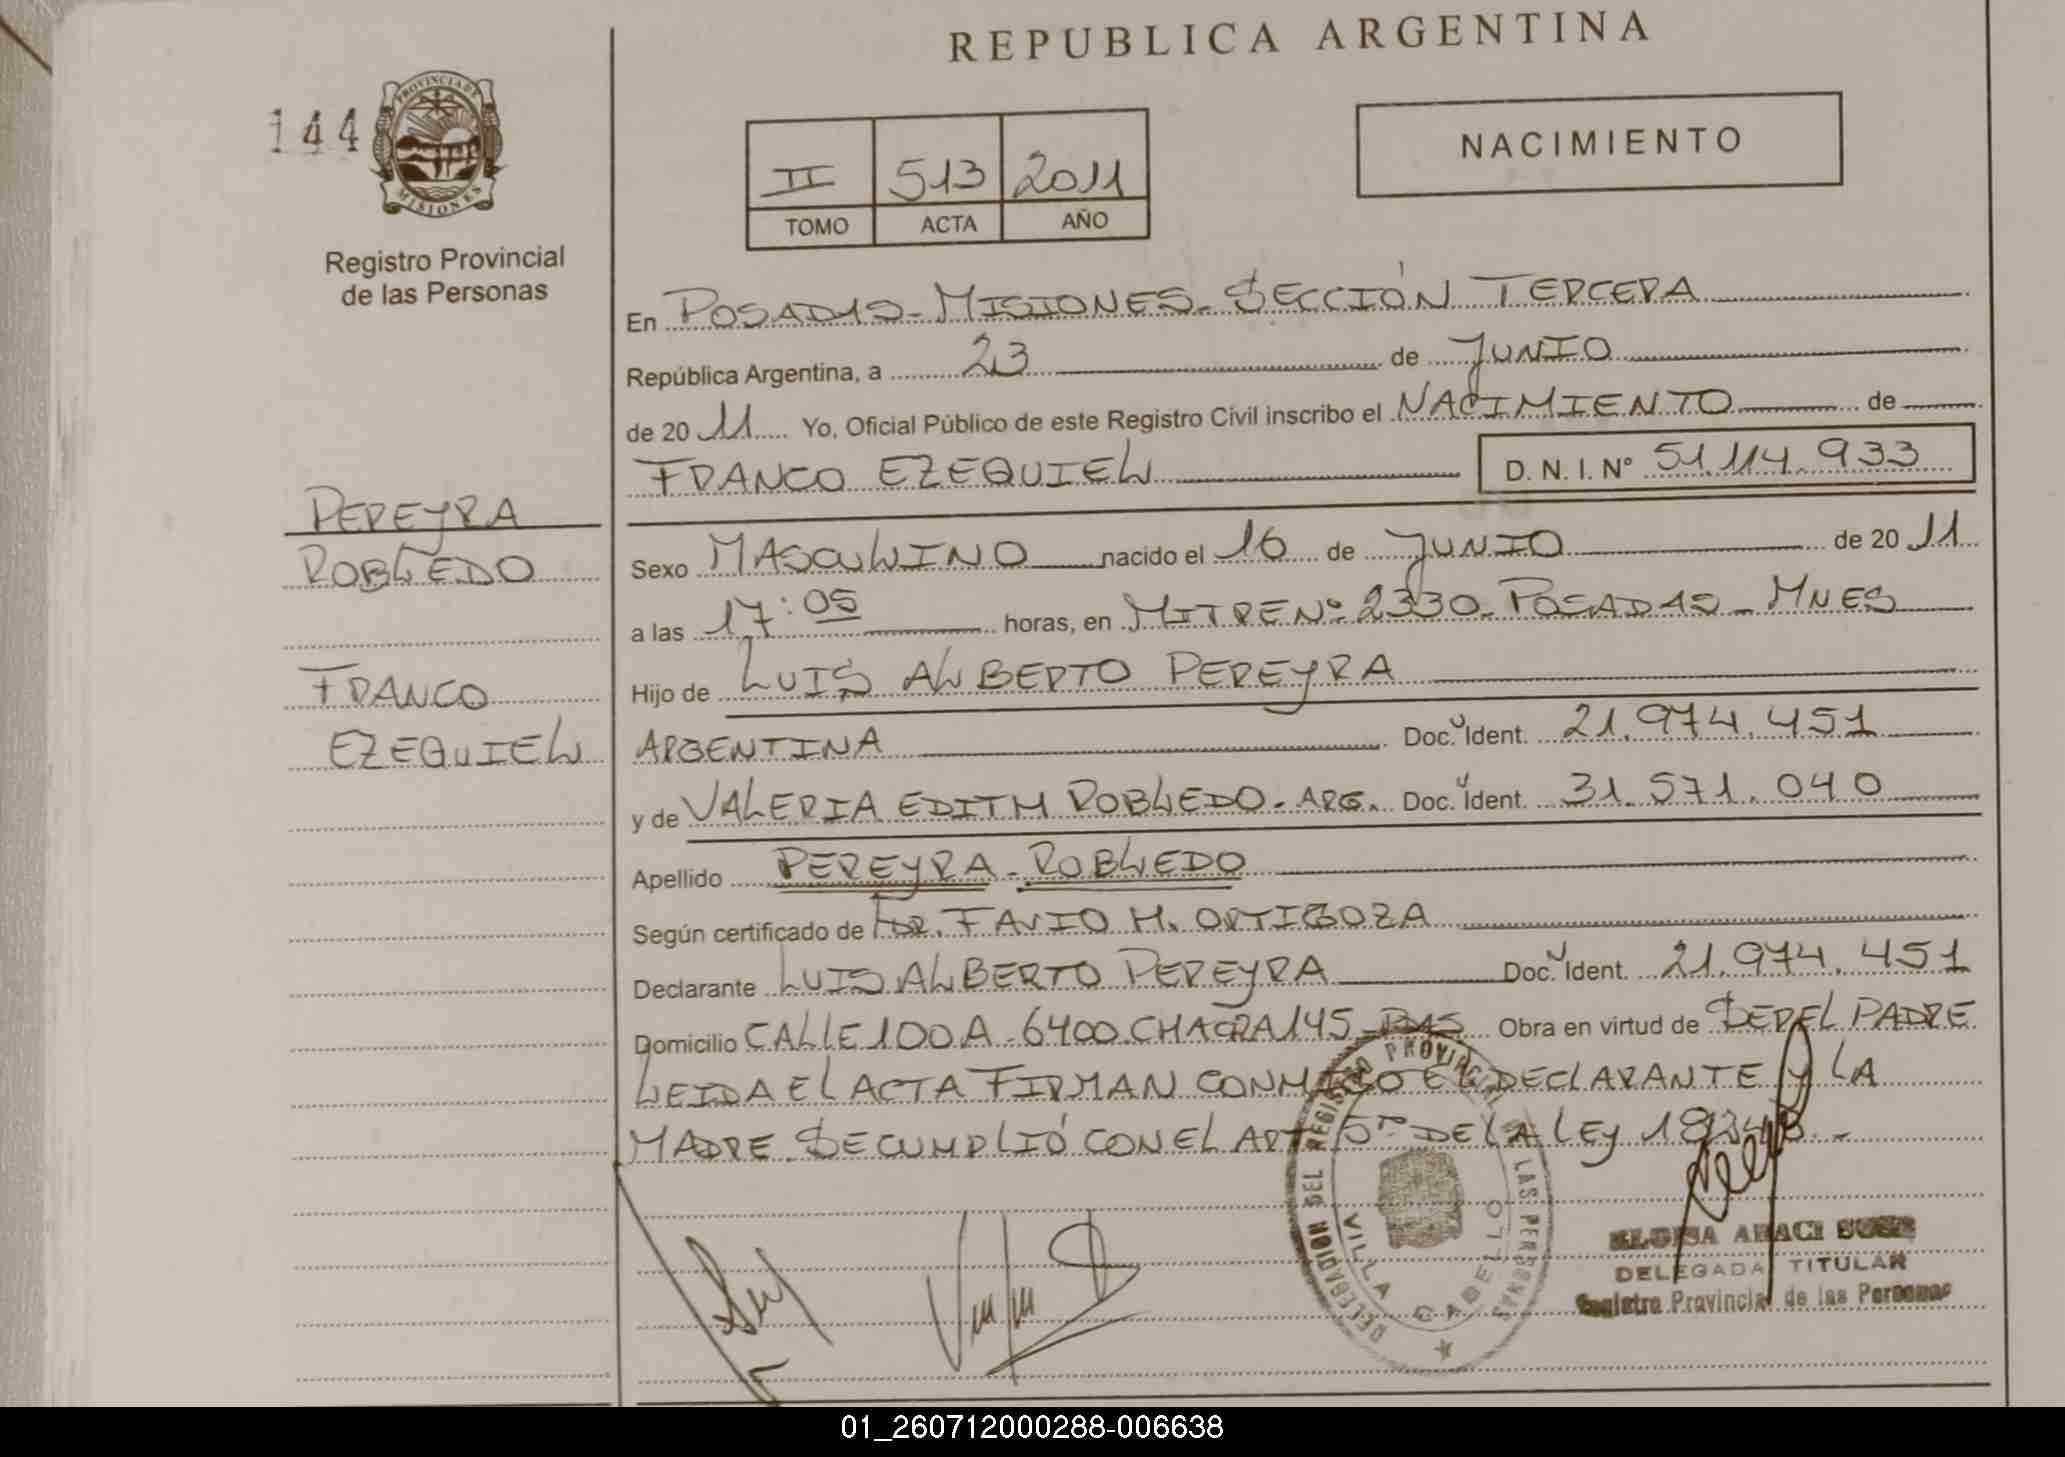 REPUBLICA ARGENTINA
144
PROVINCIA DE
MISIONES
Registro Provincial
de las Personas
NACIMIENTO
II 513 2011
TOMO ACTA AÑO
En POSADAS-MISIONES-SECCIÓN TERCERA
República Argentina, a 23 de JUNIO
de 20 11 Yo, Oficial Público de este Registro Civil inscribo el NACIMIENTO de
FRANCO EZEQUIEL D. N. I. N° 51.114.933
PEREYRA
ROBLEDO
FRANCO
EZEQUIEL
Sexo MASCULINO nacido el 16 de JUNIO de 20 11
a las 17:05 horas, en MITRE N° 2330-POSADAS-MNES
Hijo de LUIS ALBERTO PEREYRA
ARGENTINA Doc. Ident. 21.974.451
y de VALERIA EDITH ROBLEDO-ARG. Doc. Ident. 31.571.040
Apellido PEREYRA-ROBLEDO
Según certificado de DR. FAVIO H. ORTIGOZA
Declarante LUIS ALBERTO PEREYRA Doc. Ident. 21.974.451
Domicilio CALLE 100 A-6400-CHACRA 145-PDAS Obra en virtud de SER EL PADRE
LEIDA EL ACTA FIRMAN CONMIGO EL DECLARANTE Y LA
MADRE. SE CUMPLIÓ CON EL ART 5° DE LA LEY 18248.-
DELEGACION DEL REGISTRO PROVINCIAL DE LAS PERSONAS
VILLA CABELLO
ARACI
DELEGADA TITULAR
Registro Provincial de las Personas
01_260712000288-006638